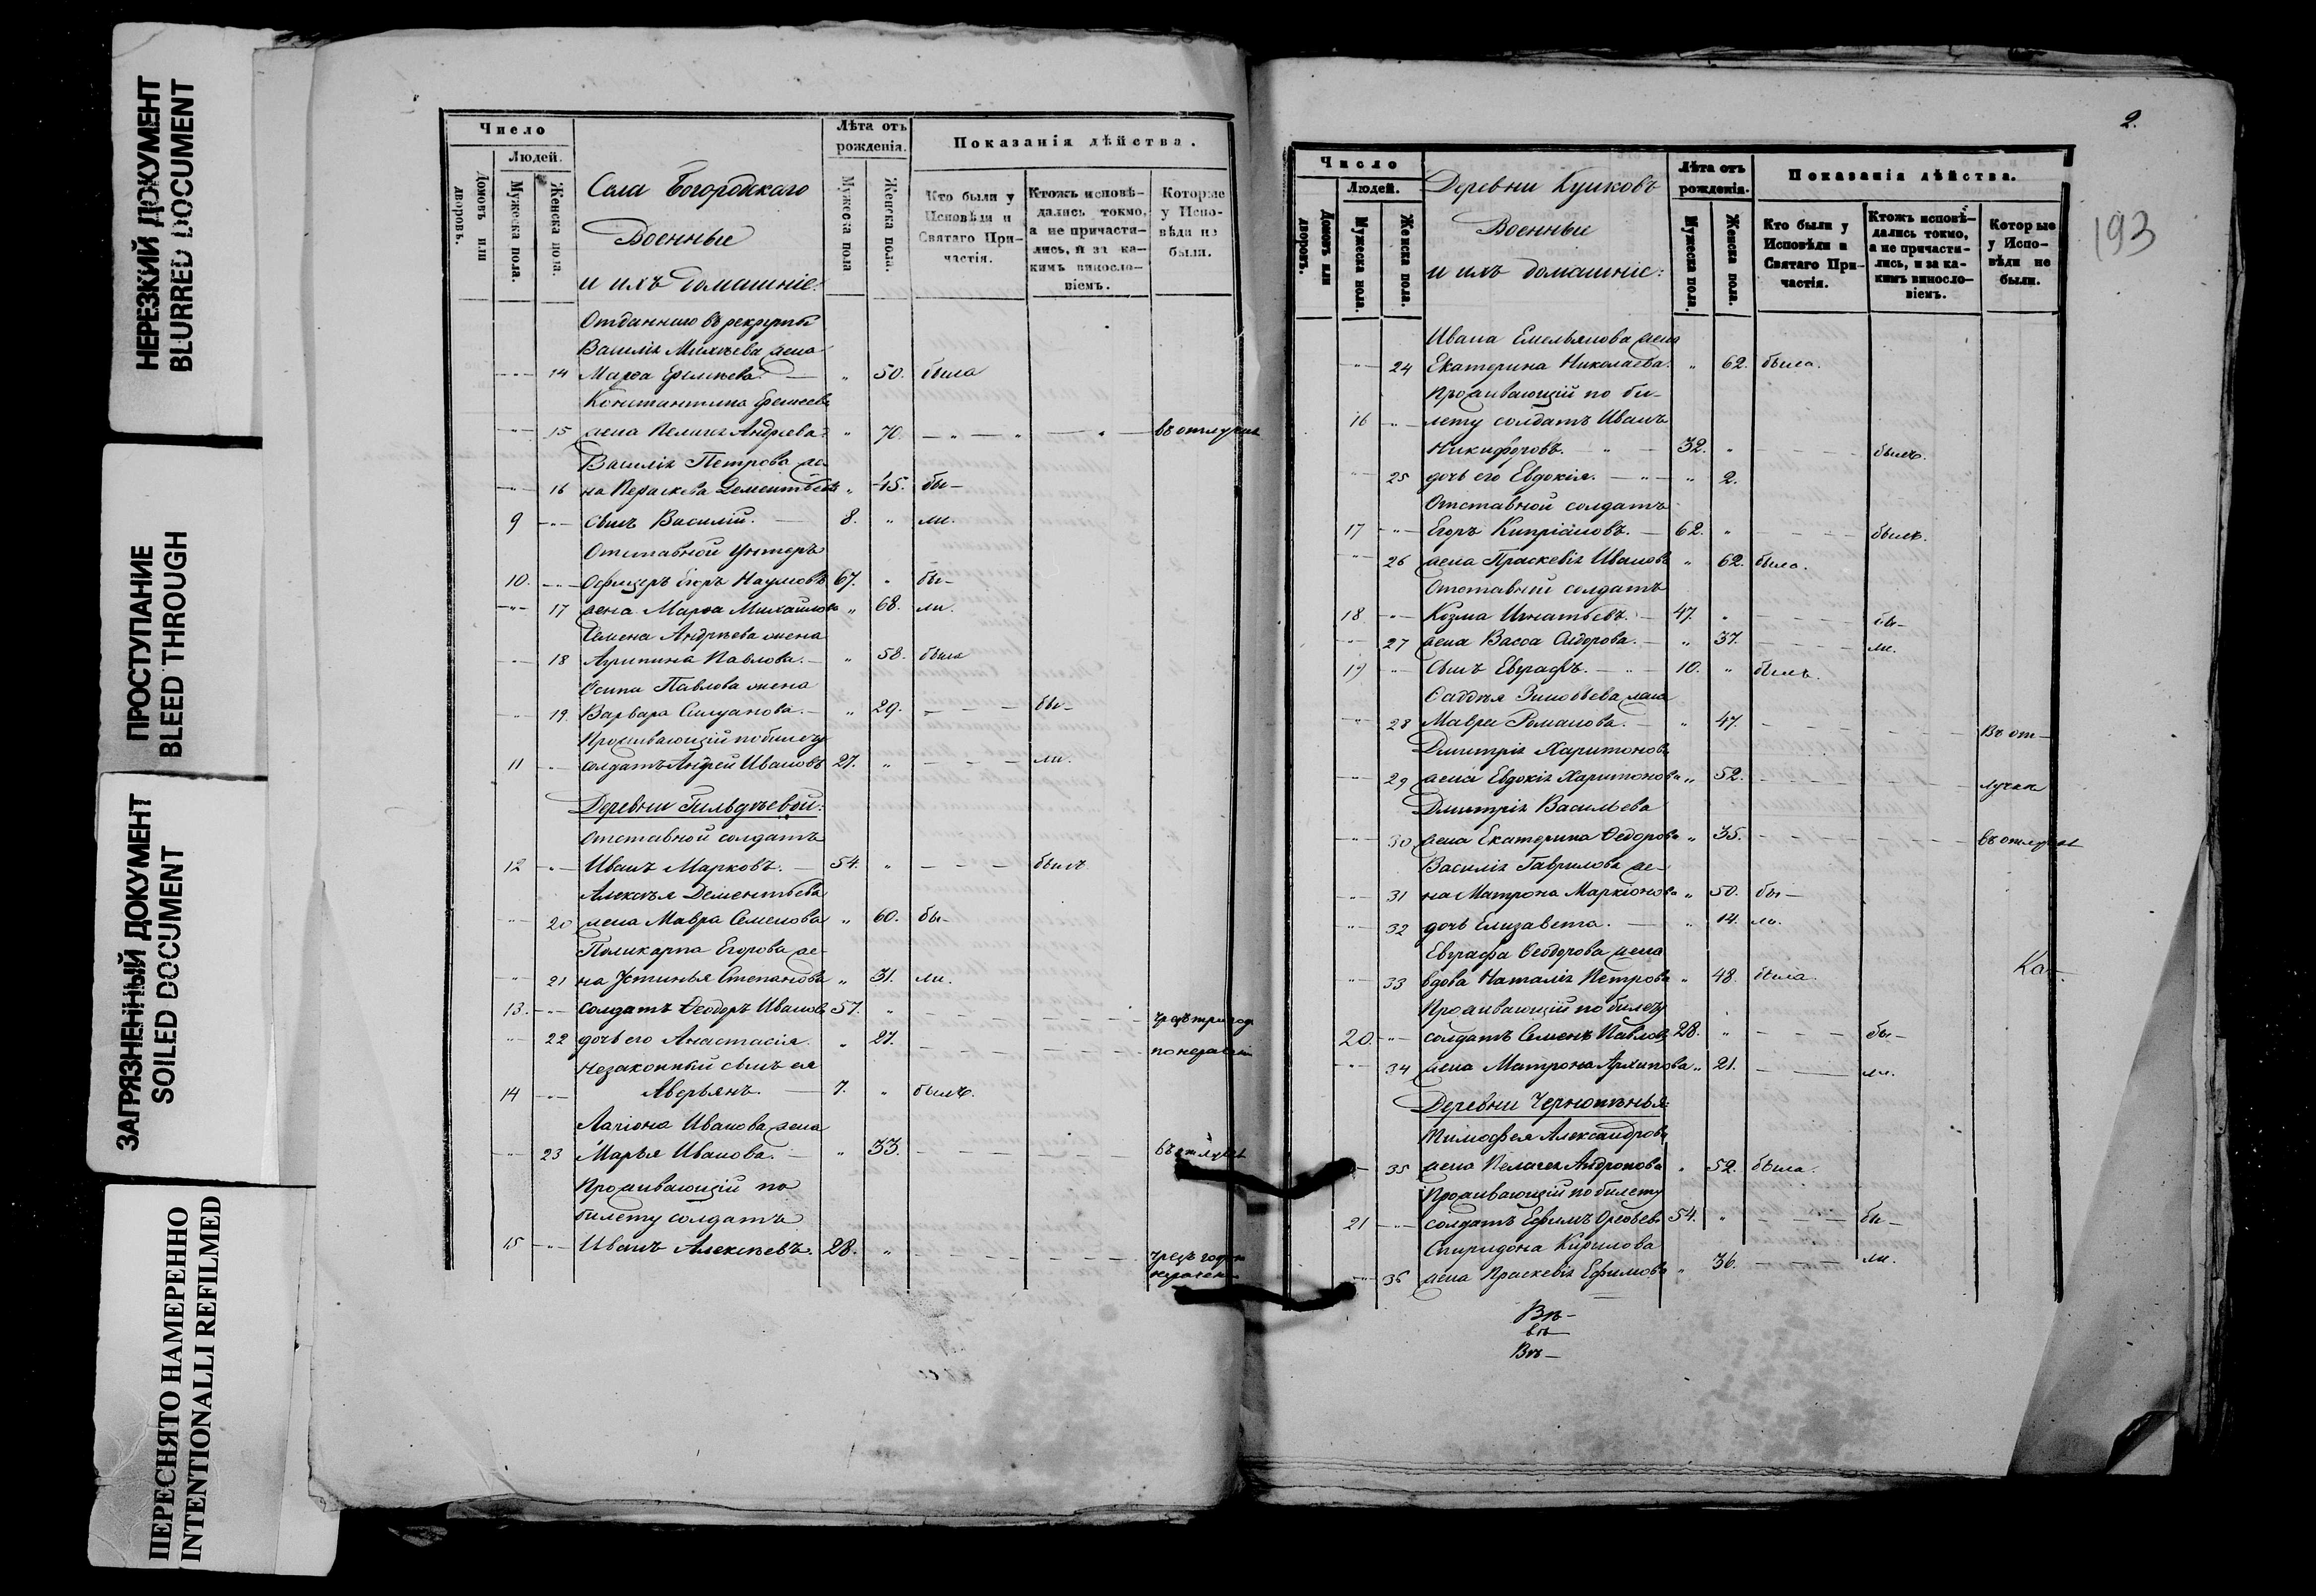 НЕРЕЗКИЙ ДОКУМЕНТ
BLURRED DOCUMENT
ПРОСТУПАНИЕ
BLEED THROUGH
ЗАГРЯЗНЕННЫЙ ДОКУМЕНТ
SOILED DOCUMENT
ПЕРЕСНЯТО НАМЕРЕННО
INTENTIONALLI REFILMED
Число
Людей.
Домовъ или дворовъ.
Мужеска пола.
Женска пола.
Села Богородскаго
Военные
и ихъ домашніе:
Лѣта отъ рожденія.
Мужеска пола
Женска пола.
Показанія дѣйства.
Кто были у Исповѣди и Святаго При-частія.
Ктожъ исповѣ-дались токмо, а не причасти-лись, и за ка-кимъ винословіемъ.
Которые у Испо-вѣди не были.
Отданнаго въ рекруты
Василія Михѣева жена
14 Марѳа Еремѣева. " 50. была
Константина
15 жена Пелагея Андреева " 70. въ отлучкѣ
Василія Петрова же-
16 на Параскева Дементьева " 45. бы-
9 сынъ Василій. 8. " ли.
Отставной Унтеръ
10. Офицеръ Егоръ Наумовъ 67. " бы-
17 жена Марѳа Михайлова " 68. ли.
Семена Андреева жена
18 Агрипина Павлова. " 58. была
Осипа Павлова жена
19. Варвара Силуанова. " 29. бы-
Проживающій по билету
11 солдатъ Андрей Ивановъ 27. " ли.
Деревни Гильдѣевой:
Отставной солдатъ
12 Иванъ Марковъ. 54. " былъ
Алексѣя Дементьева
20 жена Мавра Семенова " 60. бы-
Поликарпа Егорова же-
21 на Устинья Степанова " 31. ли.
13. солдатъ Ѳеодоръ Иванов 57. "
22 дочь его Анастасія. " 27.
Незаконный сынъ ея
14 Аверьянъ. 7. " былъ.
Лагіона Иванова жена
23 Марья Иванова. " 33. въ отлучкѣ
Проживающій по
билету солдатъ
15 Иванъ Алексѣевъ. 28. "
2.
193
Число
Людей.
Домовъ или дворовъ.
Мужеска пола.
Женска пола.
Деревни Кулковъ
Военные
и ихъ домашніе:
Лѣта отъ рожденія.
Мужеска пола.
Женска пола.
Показанія дѣйства.
Кто были у Исповѣди и Святаго При-частія.
Ктожъ исповѣ-дались токмо, а не причасти-лись, и за ка-кимъ винословіемъ.
Которые у Испо-вѣди не были.
Ивана Емельянова жена
24 Екатерина Николаева. " 62. была.
Проживающій по би-
16 лету солдатъ Иванъ
Никифоровъ. 32. " былъ.
25 дочь его Евдокія. " 2.
Отставной солдатъ
17 Егоръ Кипріановъ. 62. " былъ.
26 жена Праскевія Иванова " 62. была.
Отставной солдатъ
18 Козма Игнатьевъ. 47. " бы-
27 жена Васса Сидорова. " 37. ли.
19 Сынъ Евграфъ. 10. " былъ.
Ѳаддѣя Зиновьева жена
28 Мавра Романова. " 47. Въ от-
Дмитрія Харитонова
29 жена Евдокія Харитонова " 52. лучкѣ
Дмитрія Васильева
30 жена Екатерина Ѳедорова " 35. въ отлучкѣ
Василія Гаврилова же-
31 на Матрона Маркіонова " 50. бы-
32 дочь Елизавета. " 14. ли.
Евграфа Ѳеодорова жена
33 вдова Наталія Петрова " 48. была.
Ка-
Проживающій по билету
20. солдатъ Семенъ Павлов 28. " бы-
34 жена Матрона Архипова " 21. ли.
Деревни Чернопенья:
Тимоѳея Александрова
35 жена Пелагея Андронова " 52. была.
Проживающій по билету
21 солдатъ Ефимъ 54. " бы-
Спиридона Кирилова
36 жена Праскевія Ефимова " 36. ли.
Въ-
въ
Въ-